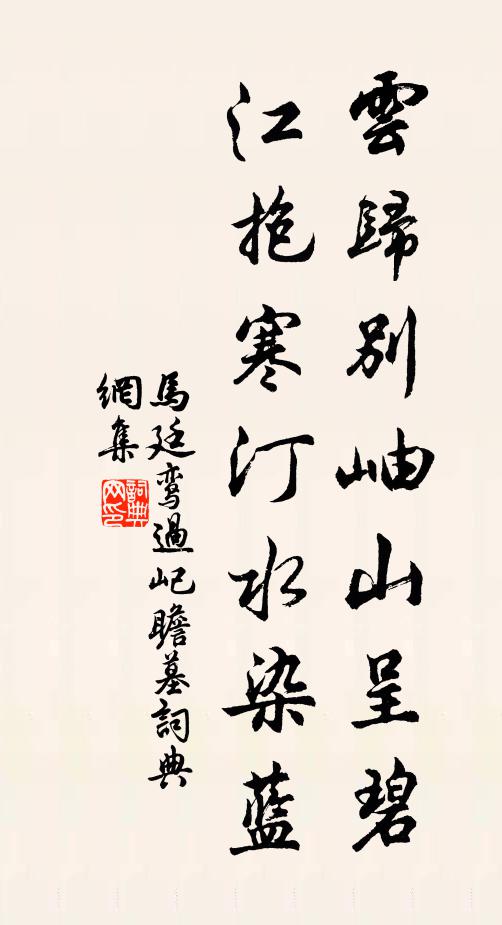 雲歸別岫山呈碧
江抱寒汀水染藍
馬廷鸞過屺瞻墓詞典
網集
詞典
网印